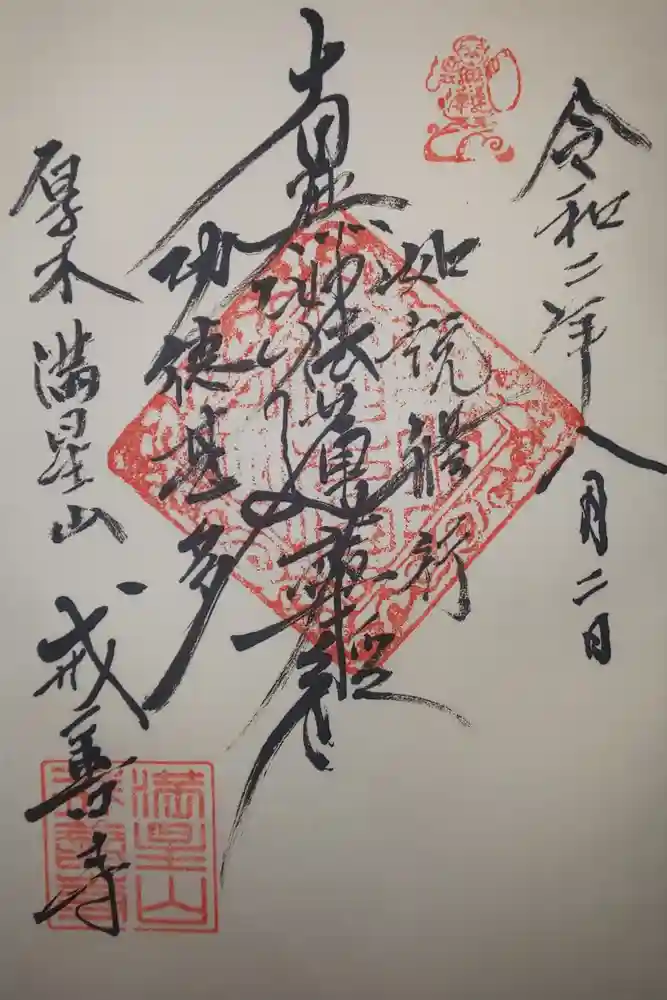 令和二年八月二日
如説修行
南無妙法蓮華経
功徳甚多
厚木 満星山
戒善寺
満星山
戒善寺